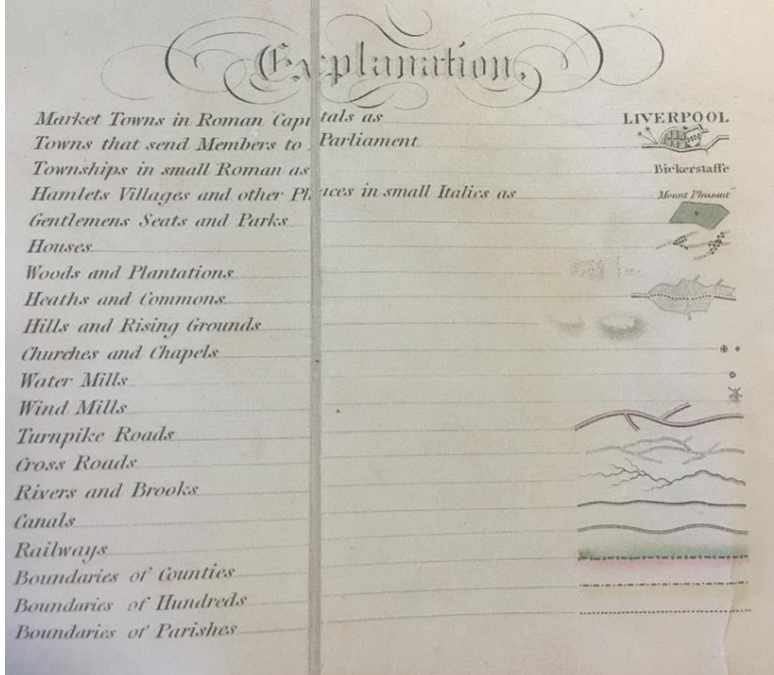 Explanation.
Market Towns in Roman Capitals as LIVERPOOL
Towns that send Members to Parliament
Townships in small Roman as Bickerstaffe
Hamlets Villages and other Places in small Italics as Mount Pleasant
Gentlemens Seats and Parks
Houses
Woods and Plantations
Heaths and Commons
Hills and Rising Grounds
Churches and Chapels
Water Mills
Wind Mills
Turnpike Roads
Cross Roads
Rivers and Brooks
Canals
Railways
Boundaries of Counties
Boundaries of Hundreds
Boundaries of Parishes